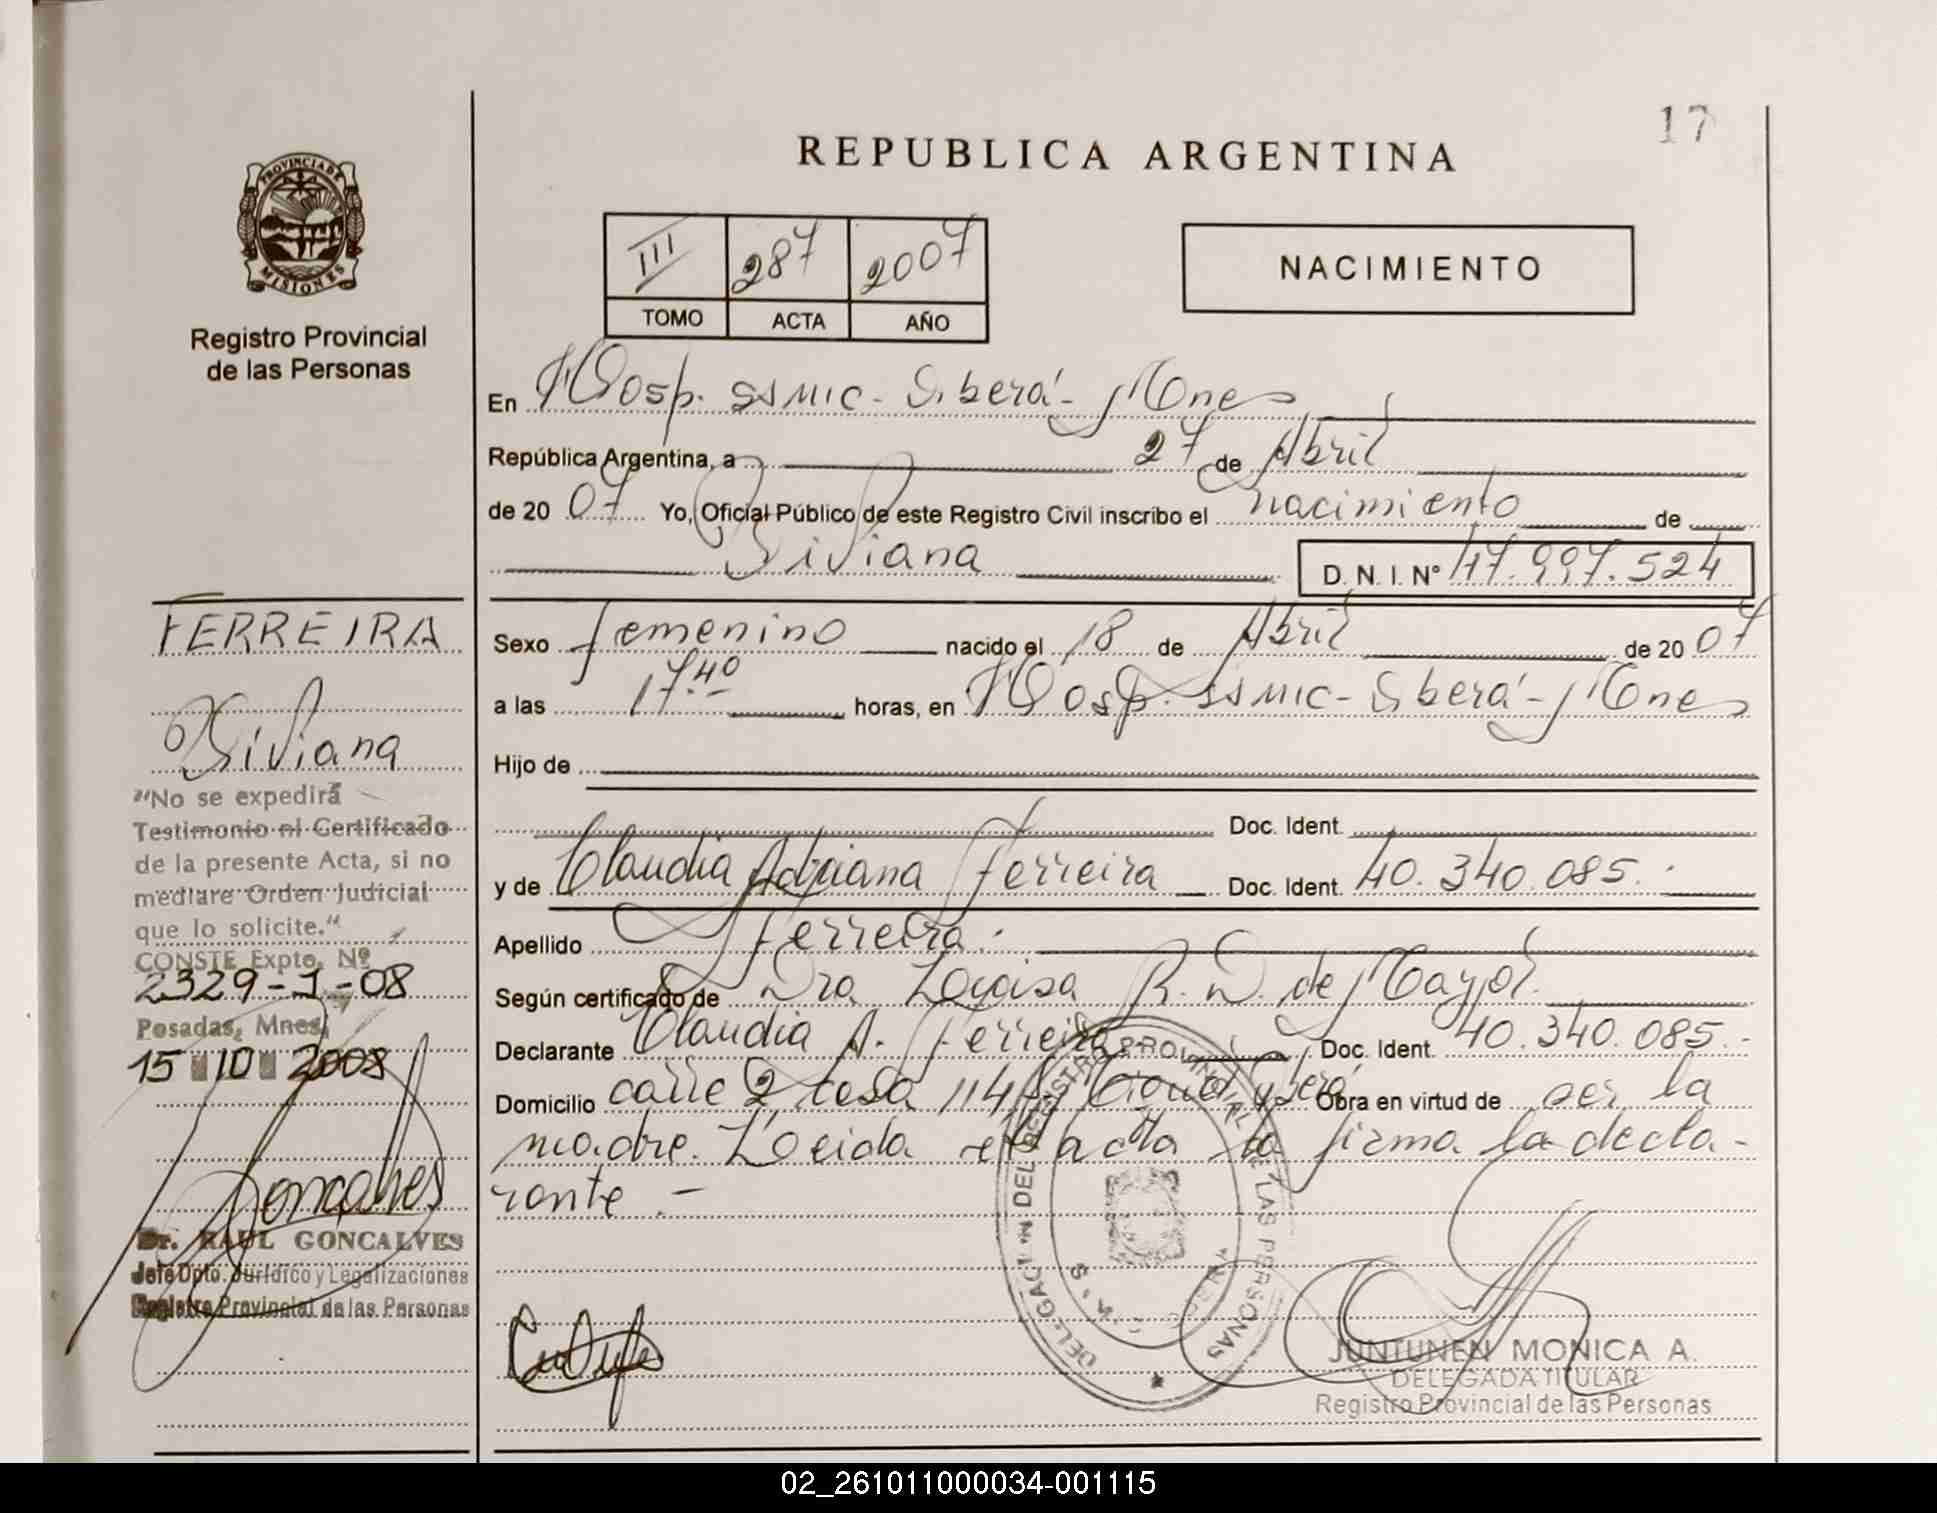 17
REPUBLICA ARGENTINA
PROVINCIA DE
MISIONES
Registro Provincial
de las Personas
III 287 2007
TOMO ACTA AÑO
NACIMIENTO
En Hosp. SSMIC - Iberá - Mnes
República Argentina, a 27 de Abril
de 20 07 Yo, Oficial Público de este Registro Civil inscribo el nacimiento de
Biviana D. N. I. Nº 47.997.524
Sexo femenino nacido el 18 de Abril de 20 07
a las 17.40 horas, en Hosp. SSMIC - Iberá - Mnes
Hijo de
Doc. Ident.
y de Claudia Adriana Ferreira Doc. Ident. 40.340.085.
Apellido Ferreira.
Según certificado de Dra R. D. de
Declarante Claudia A. Ferreira Doc. Ident. 40.340.085.-
Domicilio calle 2 casa 114 Obra en virtud de ser la
madre. Leída el acta la firma la decla-
rante. -
FERREIRA
Biviana
"No se expedirá
Testimonio ni Certificado
de la presente Acta, si no
mediare Orden Judicial
que lo solicite."
CONSTE Expte. Nº
2329-J-08
Posadas, Mnes,
15 10 2008
Goncalves
Dr. RAUL GONCALVES
Jefe Dpto. Jurídico y Legalizaciones
Registro Provincial de las Personas
DELEGACION DEL REGISTRO PROVINCIAL DE LAS PERSONAS
JUNTUNEN MONICA A.
DELEGADA TITULAR
Registro Provincial de las Personas
02_261011000034-001115